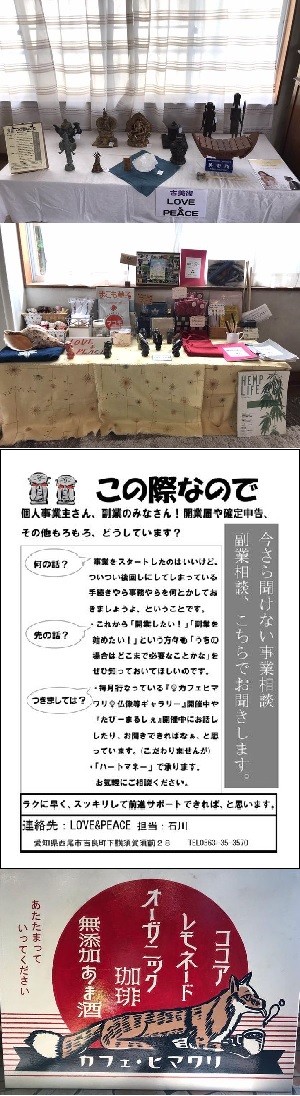 古美術
LOVE
&
PEACE
LOVE
PEACE
HEMP
LIFE
この際なので
個人事業主さん、副業のみなさん！開業届や確定申告、
その他もろもろ、どうしています？
何の話？
・事業をスタートしたのはいいけど。
ついつい後回しにしてしまっている
手続きやら事務やらを何とかしてお
きましょうよ、ということです。
先の話？
・これから「開業したい！」「副業を
始めたい！」という方々も「うちの
場合はどこまで必要なことかな」を
ぜひ知っておいてほしいのです。
つきましては？
・毎月行なっている『♀カフェヒマ
ワリ♀仏像等ギャラリー』開催中や
『たびーまるしぇ』開催中にお話し
したり、お聞きできればなぁ、と思
っています。（こだわりませんが）
・「ハートマネー」で承ります。
お気軽にご相談ください。
今さら聞けない事業相談
副業相談、こちらでお聞きします。
ラクに早く、スッキリして前進サポートできれば、と思います。
連絡先：LOVE&PEACE 担当：石川
ココア
レモネード
オーガニック
珈琲
無添加あま酒
あたたまって
いってください
カフェ・ヒマワリ